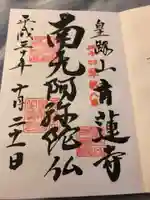 皇路山 青蓮寺
南无阿弥陀仏
平成三十年 十月二十一日